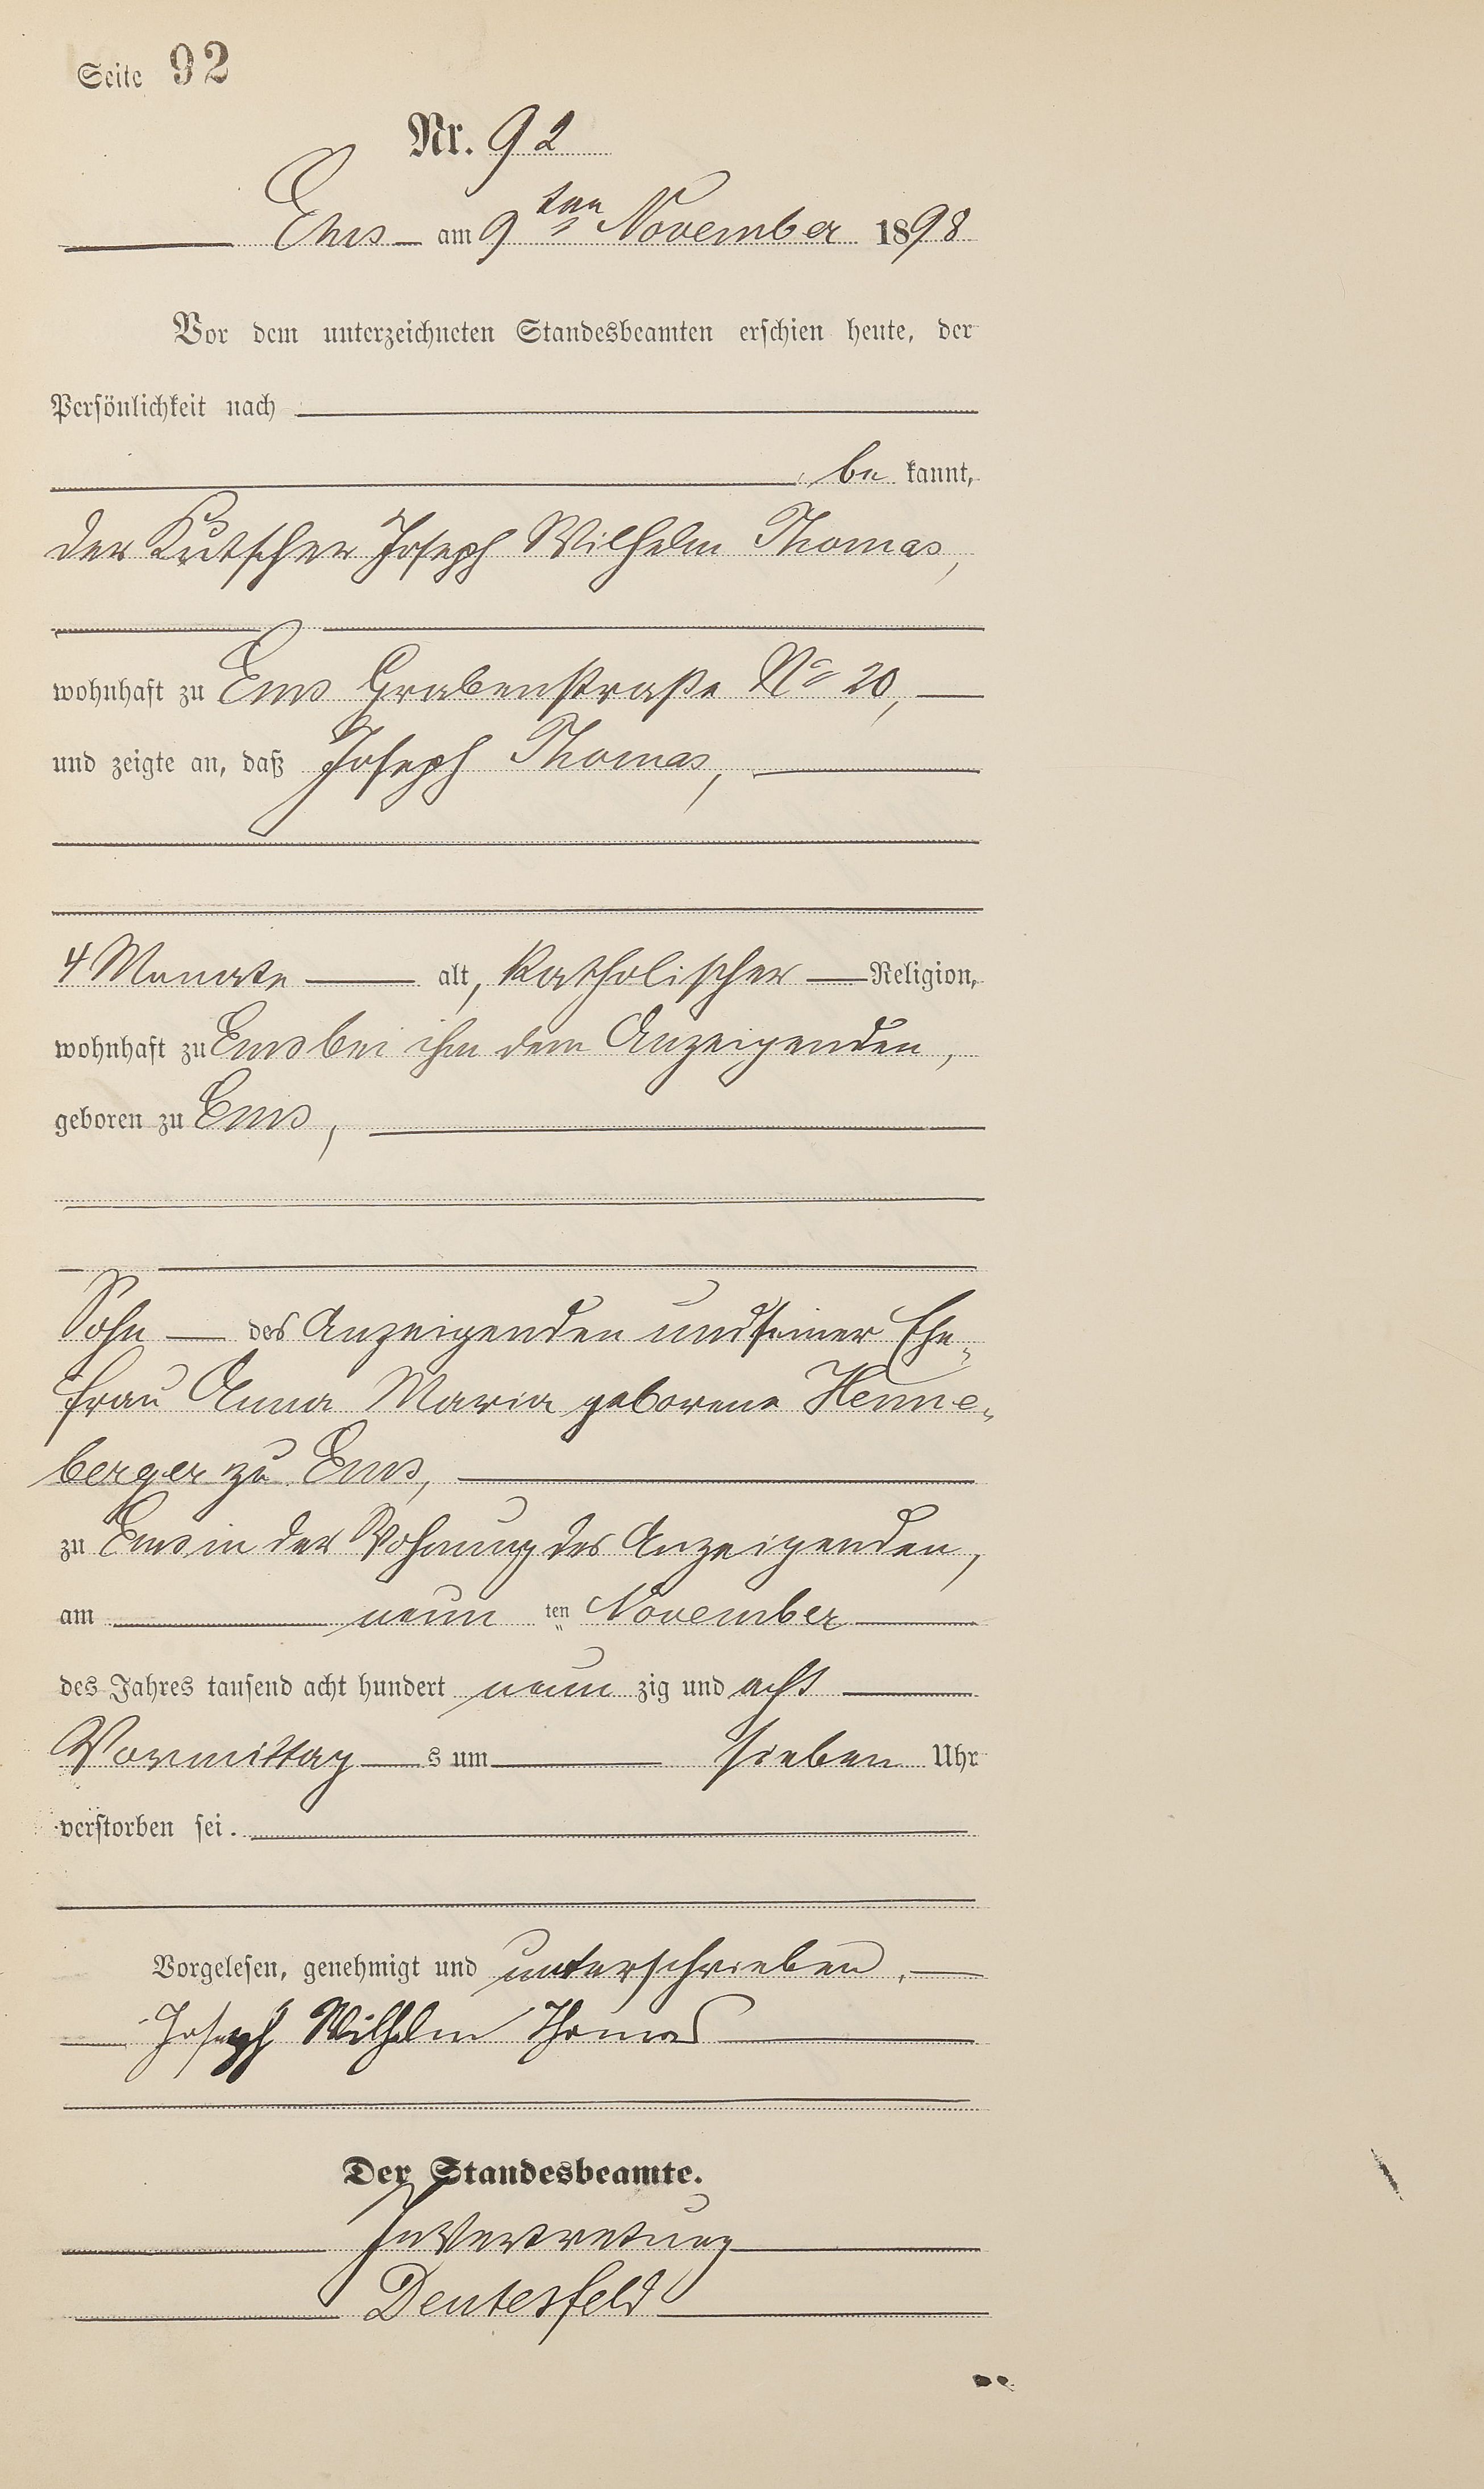 Seite 92
Nr. 92
Ems am 9ten November 1898
Vor dem unterzeichneten Standesbeamten erschien heute, der
Persönlichkeit nach
be kannt,
der Kutscher Joseph Wilhelm Thomas,
wohnhaft zu Ems Grabenstraße No 20,
und zeigte an, daß Joseph Thomas,
4 Monate alt, katholischer Religion,
wohnhaft zu Ems bei ihm dem Anzeigenden,
geboren zu Ems,
Sohn des Anzeigenden und seiner Ehe-
frau Anna Maria geborene Henne-
berger zu Ems,
zu Ems in der Wohnung des Anzeigenden,
am neun ten November
des Jahres tausend acht hundert neun zig und acht
Vormittag s um sieben Uhr
verstorben sei.
Vorgelesen, genehmigt und unterschrieben.
Joseph Wilhelm Thomas
Der Standesbeamte.
In Vertretung
Deutesfeld